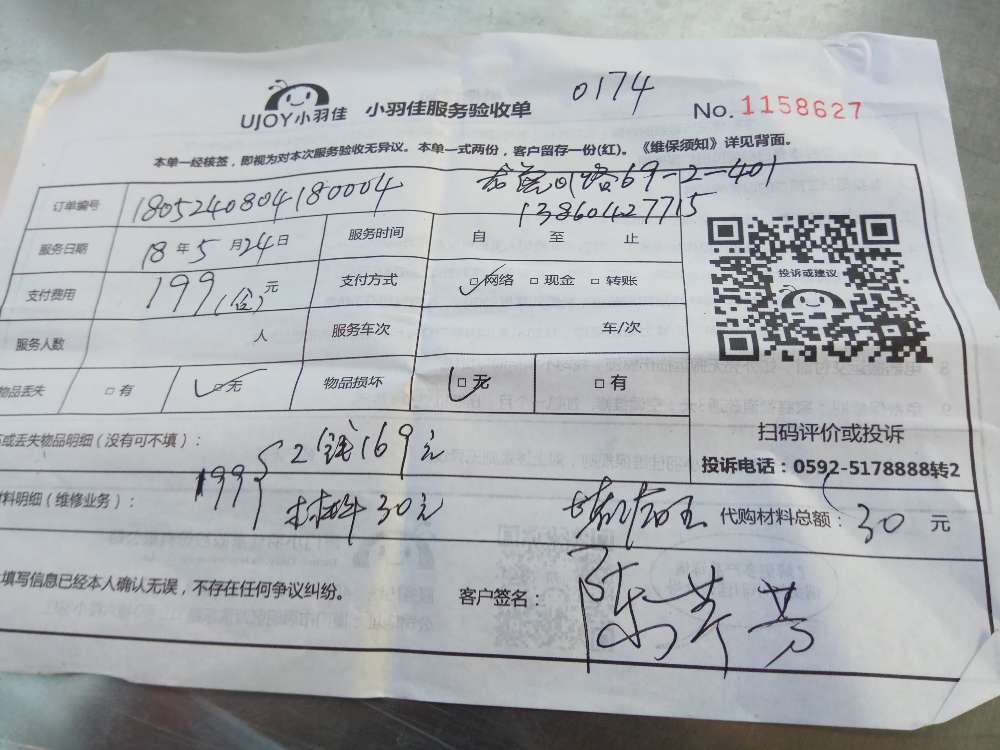 UJOY小羽佳 小羽佳服务验收单 0174 No. 1158627
本单一经核签，即视为对本次服务验收无异议。本单一式两份，客户留存一份(红)。《维保须知》详见背面。
订单编号 1805240804180004 路69-2-401
13860427715
服务日期 18年5月24日 服务时间 自 至 止
支付费用 199(含)元 支付方式 □网络 □现金 □转账
投诉或建议
服务人数 人 服务车次 车/次
物品丢失 □有 □无 物品损坏 □无 □有
扫码评价或投诉
或丢失物品明细（没有可不填）：
199 2钱169元
投诉电话：0592-5178888转2
料明细（维修业务）： 材料30元 代购材料总额：30元
填写信息已经本人确认无误，不存在任何争议纠纷。 客户签名：